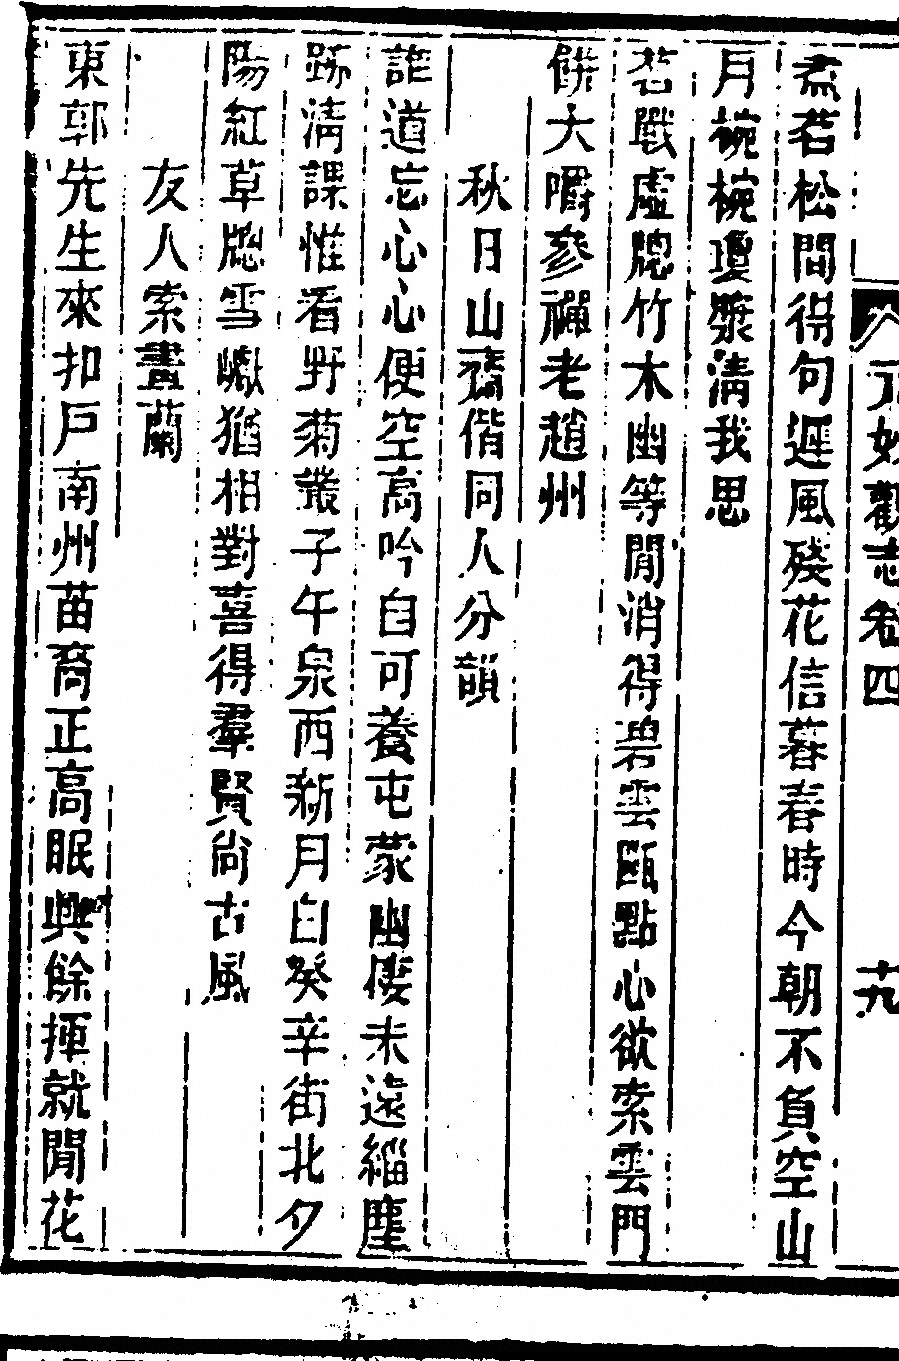 妙觀志卷四
十九
煮茗松間得句遲風殘花信暮春時今朝不負空山
月椀椀瓊漿清我思
茗戰虛牕竹木幽等閒消得碧雲甌點心欲索雲門
餅大嚼參禪老趙州
秋日山齋偕同人分韻
誰道忘心心便空高吟自可養屯蒙幽偠未遠緇塵
跡清課惟看野菊叢子午泉西新月白癸辛街北夕
陽紅草牕雪巘猶相對喜得羣賢尙古風
友人索畫蘭
東郭先生來扣戶南州苗裔正高眠興餘揮就閒花